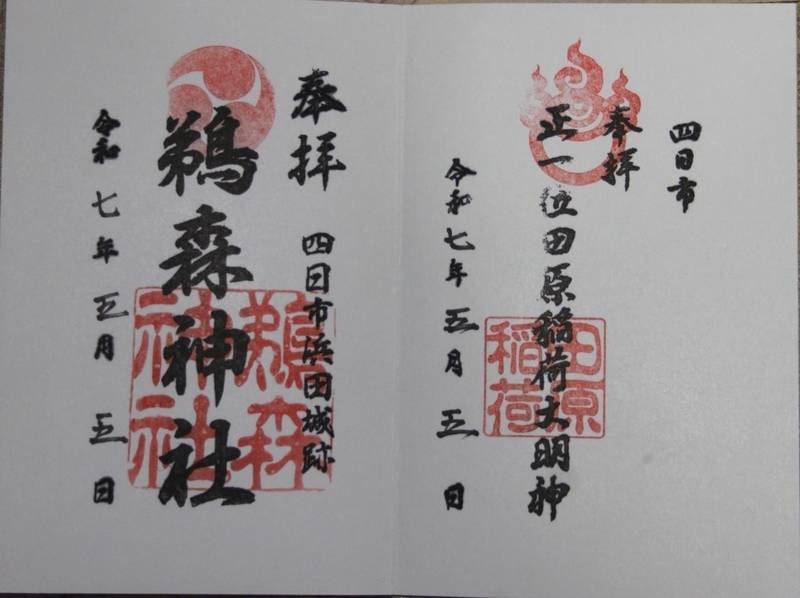 四日市
奉拝
正一位田原稲荷大明神
田原
稲荷
令和七年五月五日
奉拝
四日市浜田城跡
鵜森神社
鵜森
神社
令和七年五月五日